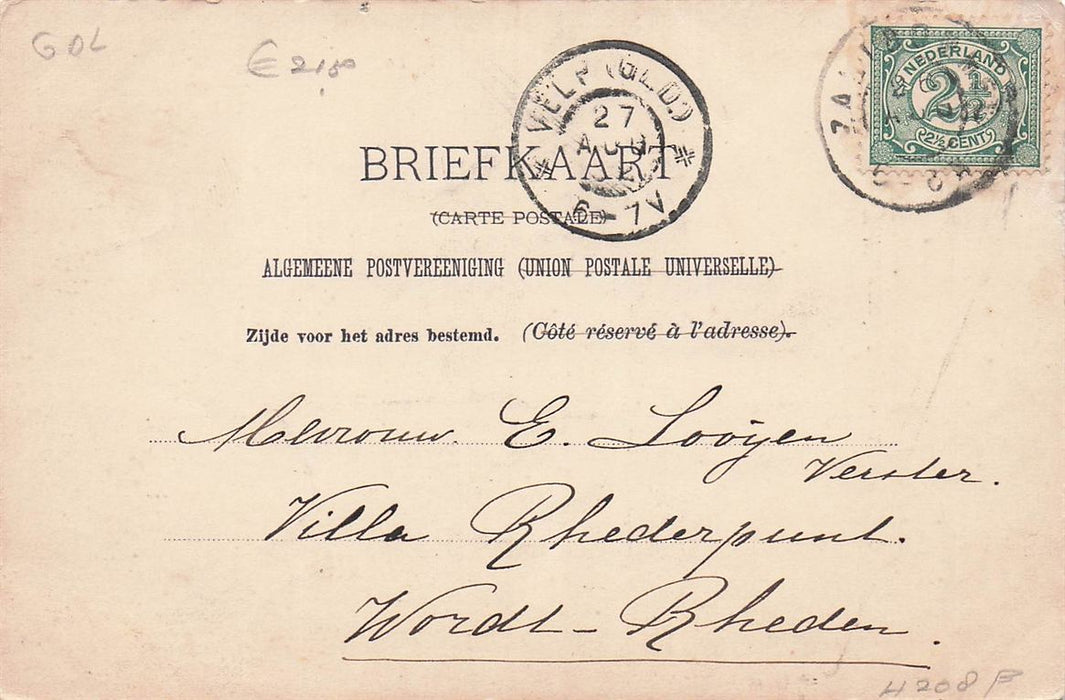 GDL
€ 2,50
NEDERLAND
2½
2½ CENT
VELP (GLD.)
27
AUG
6-7V
BRIEFKAART
(CARTE POSTALE)
ALGEMEENE POSTVEREENIGING (UNION POSTALE UNIVERSELLE)
Zijde voor het adres bestemd. (Côté réservé à l'adresse).
Mevrouw. E. Looijen
Verster.
Villa Rhederpunt.
Wordt-Rheden.
4208 B